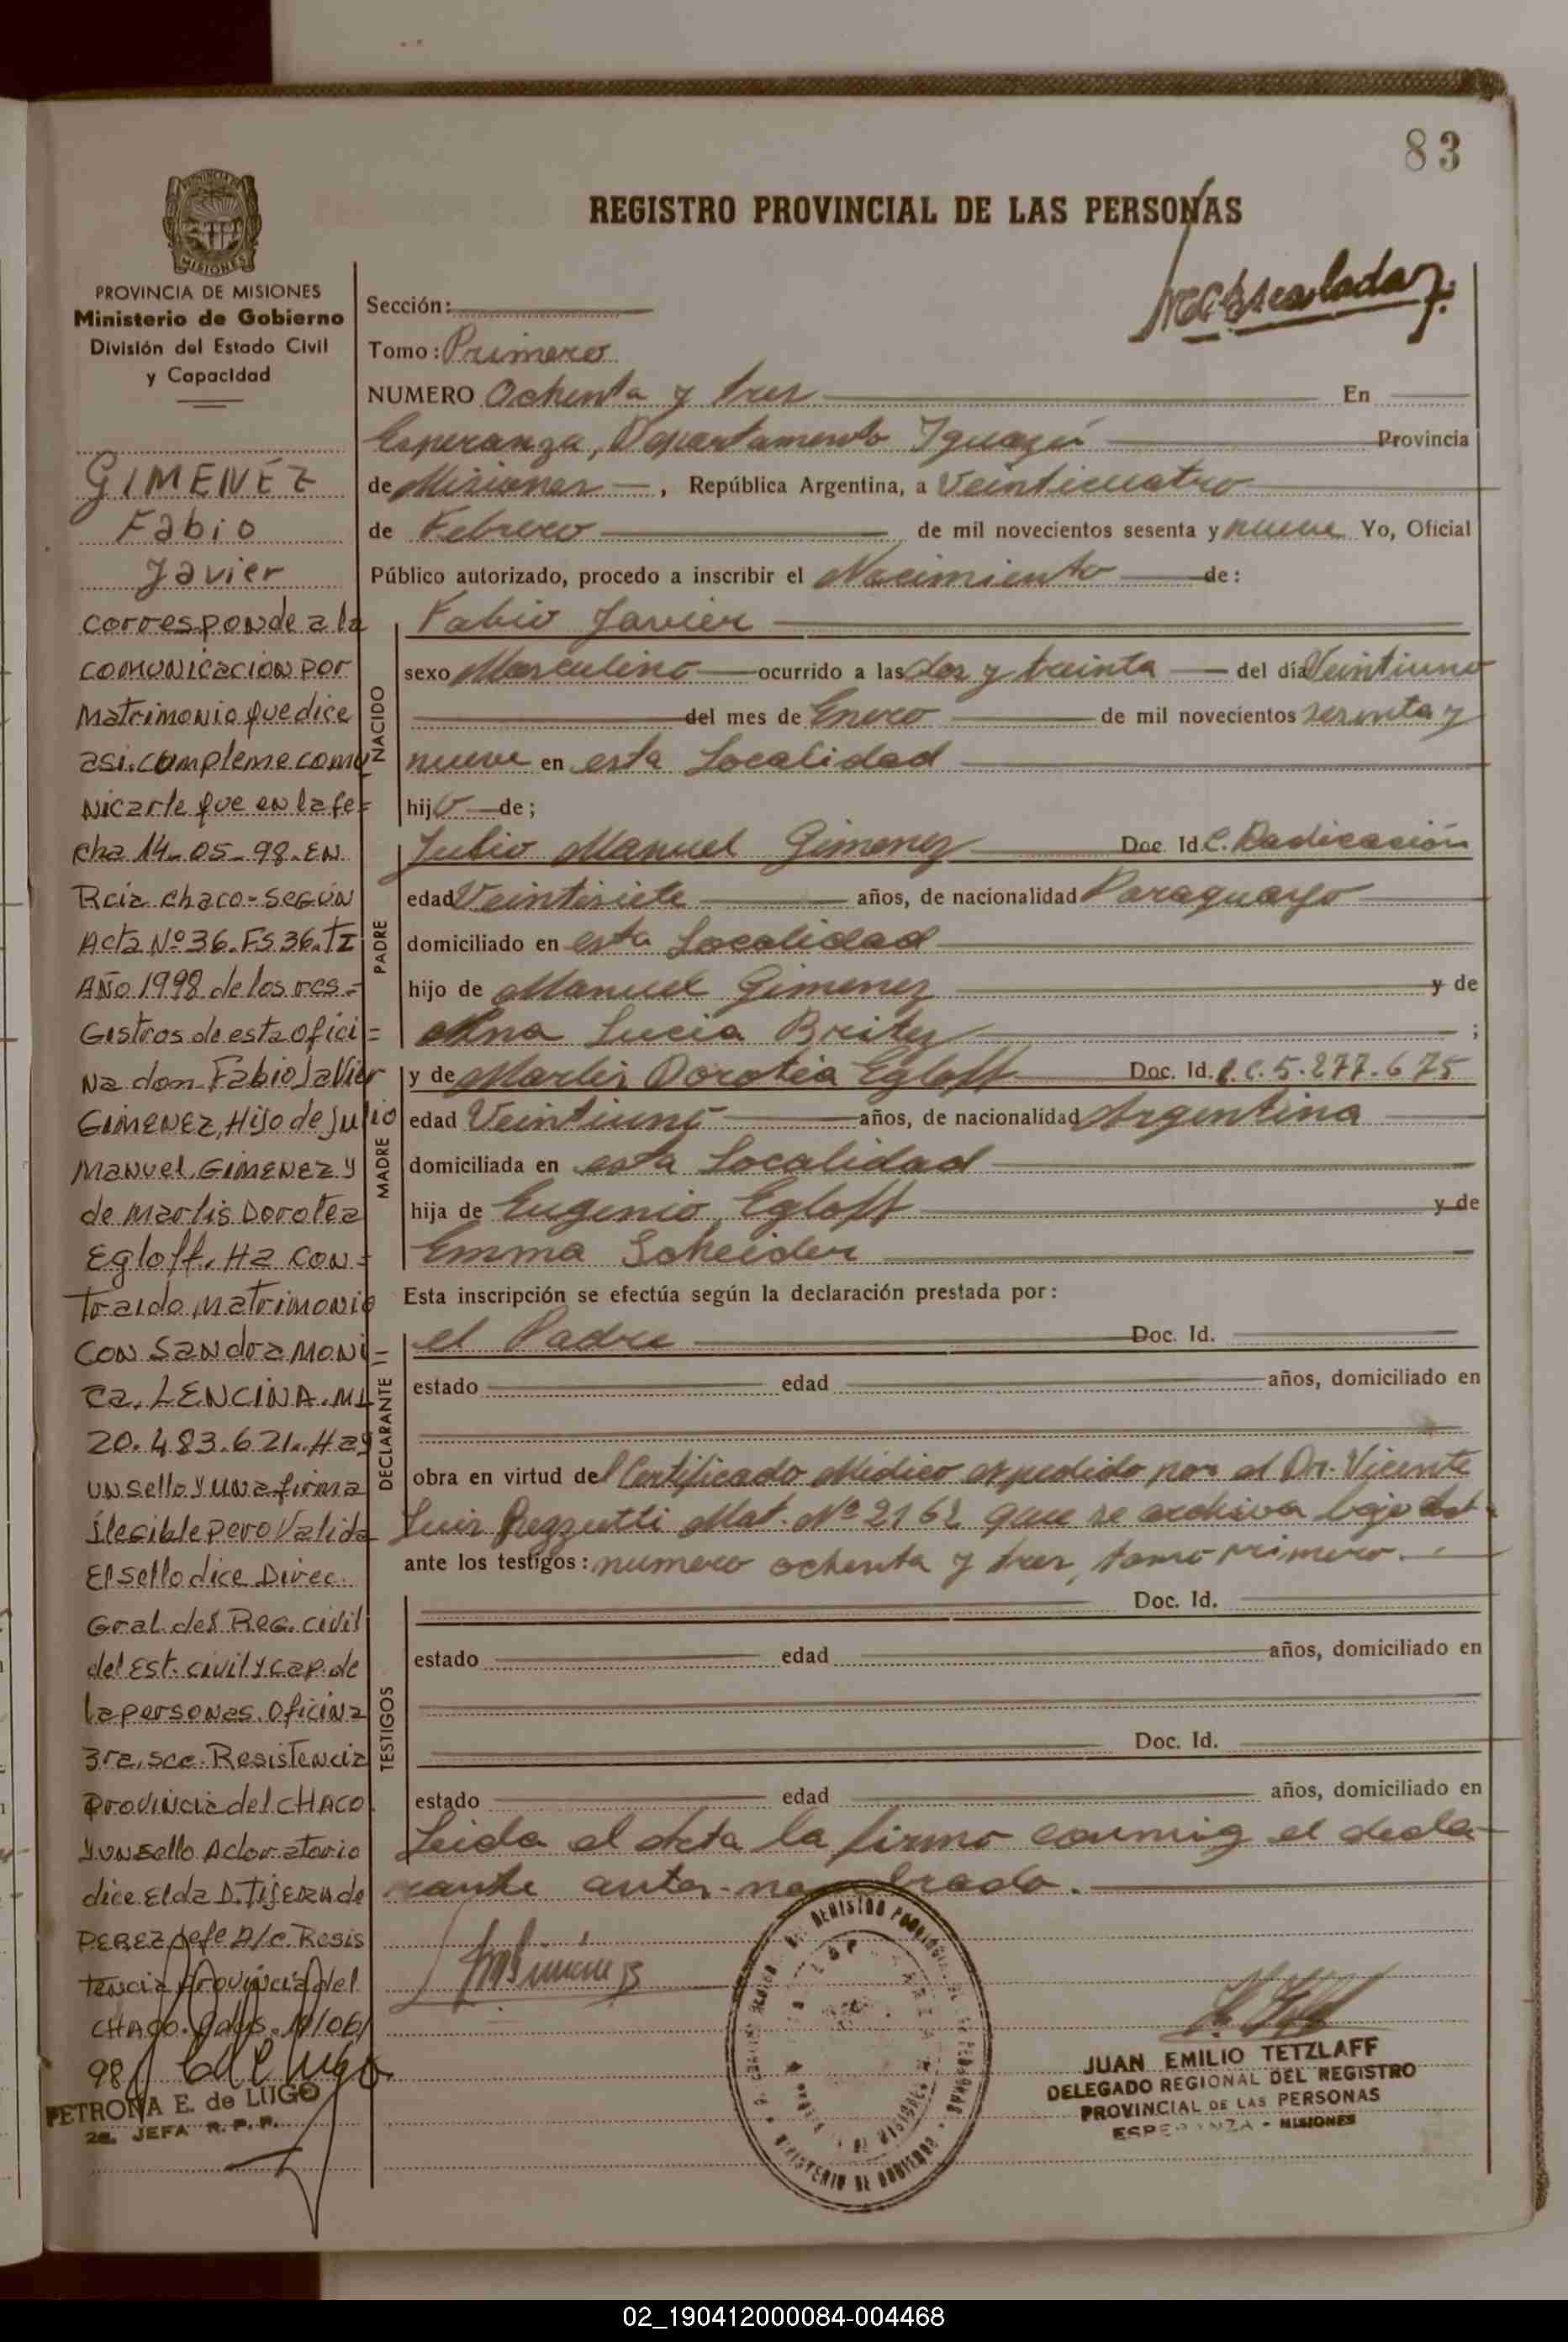 83
REGISTRO PROVINCIAL DE LAS PERSONAS
MISIONES
PROVINCIA DE MISIONES
Ministerio de Gobierno
División del Estado Civil
y Capacidad
GIMENEZ
Fabio
Javier
corresponde a la
comunicación por
Matrimonio que dice
asi. cumpleme comu
nicarle que en la fe=
cha 14-05-98. EN
Rcia chaco-según
Acta Nº 36. Fs 36. tI
AÑO 1998 de los res=
Gistros de esta ofici=
na don Fabio Javier
GIMENEZ, Hijo de Julio
Manuel GIMENEZ y
de Marlis Dorotea
Egloff. Ha con=
traido Matrimonio
con Sandra Moni=
ca. LENCINA. MI
20.483.621. Hay
un sello y una firma
ilegible pero valida
El sello dice Direc.
Gral. del Reg. civil
del Est. civil y cap. de
la personas. Oficina
3ra. scc. Resistencia
Provincia del CHACO.
y un sello Aclaratorio
dice Elda D. Tijeran de
PEREZ Jefe A/c. Resis
tencia Provincia del
CHACO. 11/06/
98
PETRONA E. de LUGO
2a. JEFA R.P.P.
Sección:
Tomo: Primero
NUMERO Ochenta y tres En
Esperanza, Departamento Iguazú Provincia
de Misiones, República Argentina, a Veinticuatro
de Febrero de mil novecientos sesenta y nueve Yo, Oficial
Público autorizado, procedo a inscribir el Nacimiento de:
NACIDO
Fabio Javier
sexo Masculino ocurrido a las dos y treinta del día Veintiuno
del mes de Enero de mil novecientos sesenta y
nueve en esta Localidad
hijo de;
PADRE
Julio Manuel Gimenez Doc. Id. C. Radicación
edad Veintisiete años, de nacionalidad Paraguayo
domiciliado en esta Localidad
hijo de Manuel Gimenez y de
Ana Lucia Britez ;
MADRE
y de Marlis Dorotea Egloff Doc. Id. L.C. 5.277.675
edad Veintiuno años, de nacionalidad Argentina
domiciliada en esta Localidad
hija de Eugenio Egloff y de
Emma Scheider
Esta inscripción se efectúa según la declaración prestada por:
DECLARANTE
el Padre Doc. Id.
estado edad años, domiciliado en
obra en virtud del Certificado Médico expedido por el Dr. Vicente
Luis Mat. Nº 2162 que se archiva bajo
ante los testigos: numero ochenta y tres, tomo primero.
TESTIGOS
Doc. Id.
estado edad años, domiciliado en
Doc. Id.
estado edad años, domiciliado en
Leida el Acta la firma conmigo el decla-
rante antes nombrado.
JUAN EMILIO TETZLAFF
DELEGADO REGIONAL DEL REGISTRO
PROVINCIAL DE LAS PERSONAS
ESPERANZA - MISIONES
02_190412000084-004468